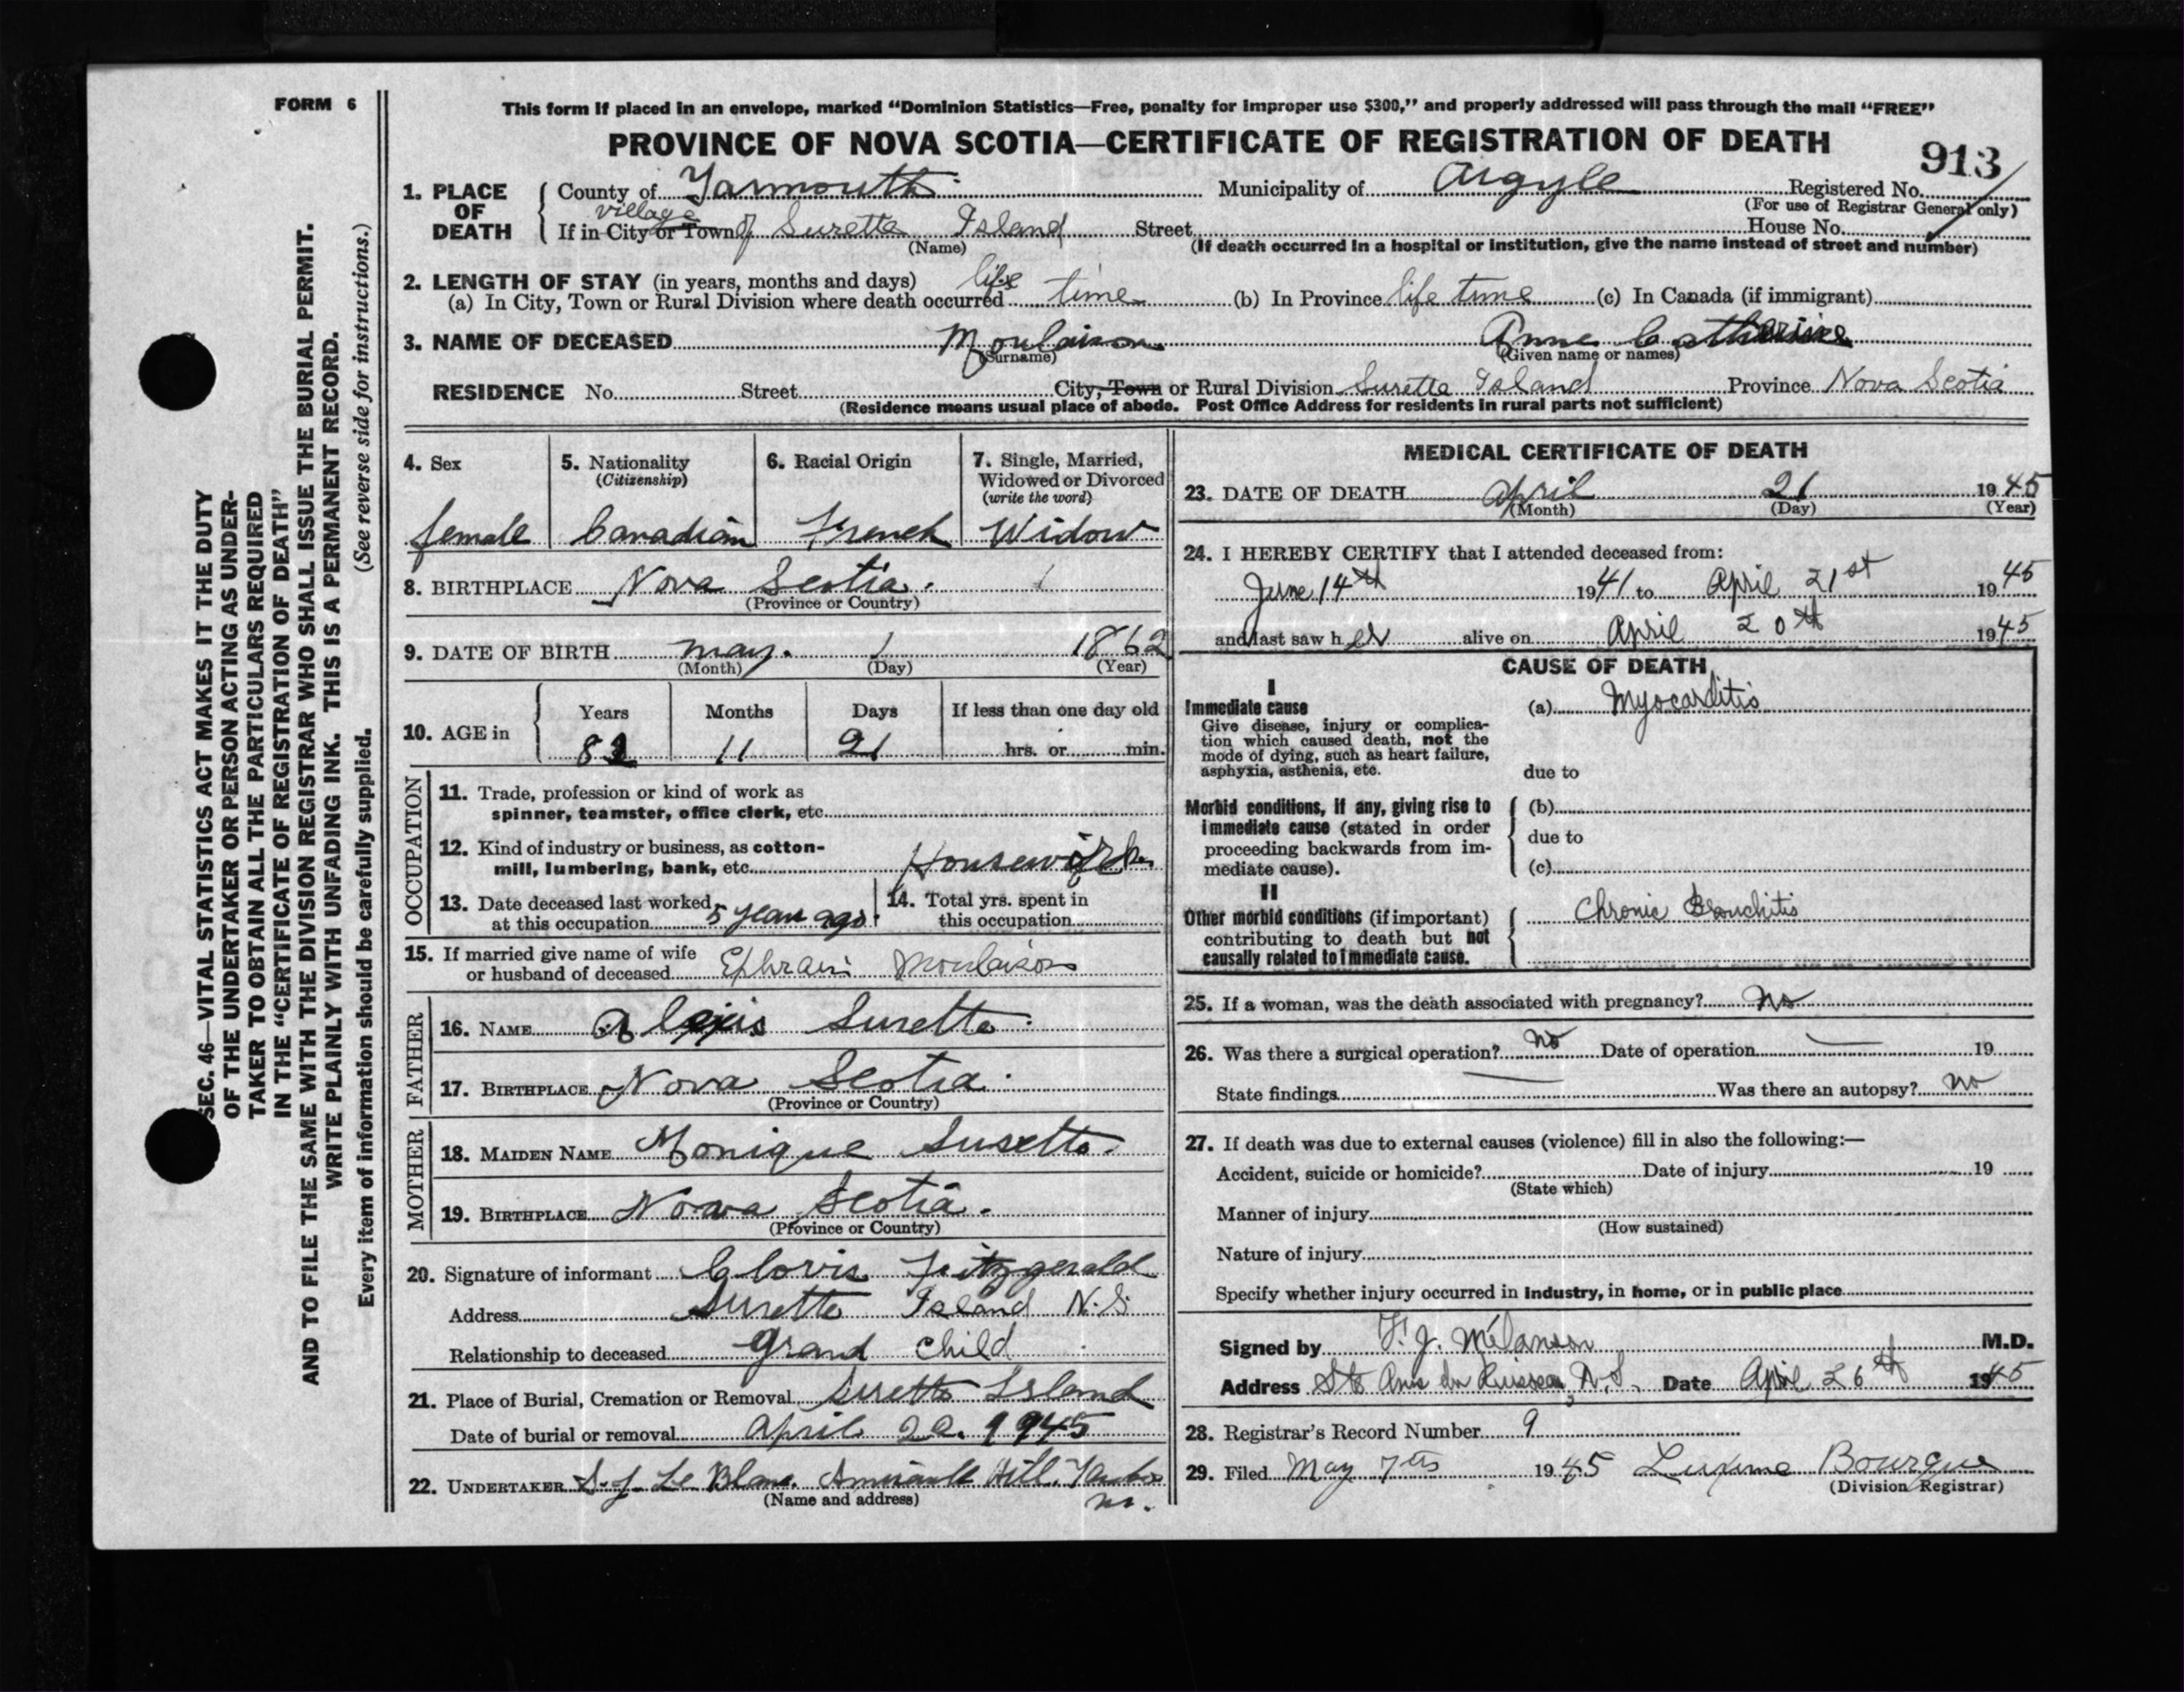 FORM 6
This form if placed in an envelope, marked "Dominion Statistics—Free, penalty for improper use $300," and properly addressed will pass through the mail "FREE"
PROVINCE OF NOVA SCOTIA—CERTIFICATE OF REGISTRATION OF DEATH
913
1. PLACE OF DEATH
County of Yarmouth Municipality of Argyle Registered No.
(For use of Registrar General only)
village
If in City or Town of Surette Island Street House No.
(Name) (If death occurred in a hospital or institution, give the name instead of street and number)
2. LENGTH OF STAY (in years, months and days)
(a) In City, Town or Rural Division where death occurred life time (b) In Province life time (c) In Canada (if immigrant)
3. NAME OF DECEASED Moulaison Anne Catherine
(Surname) (Given name or names)
RESIDENCE No. Street City, Town or Rural Division Surette Island Province Nova Scotia
(Residence means usual place of abode. Post Office Address for residents in rural parts not sufficient)
4. Sex female
5. Nationality (Citizenship) Canadian
6. Racial Origin French
7. Single, Married, Widowed or Divorced (write the word) Widow
8. BIRTHPLACE Nova Scotia.
(Province or Country)
9. DATE OF BIRTH May. 1 1862
(Month) (Day) (Year)
10. AGE in
Years Months Days If less than one day old
82 11 21 hrs. or min.
OCCUPATION
11. Trade, profession or kind of work as
spinner, teamster, office clerk, etc.
12. Kind of industry or business, as cotton-
mill, lumbering, bank, etc. Housework
13. Date deceased last worked
at this occupation 5 years ago.
14. Total yrs. spent in
this occupation
15. If married give name of wife
or husband of deceased Ephraim Moulaison
FATHER
16. NAME Alexis Surette.
17. BIRTHPLACE Nova Scotia.
(Province or Country)
MOTHER
18. MAIDEN NAME Monique Surette.
19. BIRTHPLACE Nova Scotia.
(Province or Country)
20. Signature of informant Clovis Fitzgerald
Address Surette Island N.S.
Relationship to deceased Grand Child
21. Place of Burial, Cremation or Removal Surette Island
Date of burial or removal April 1945
22. UNDERTAKER S. J. Le Blanc. Amirault Hill.
(Name and address)
MEDICAL CERTIFICATE OF DEATH
23. DATE OF DEATH April 21 1945
(Month) (Day) (Year)
24. I HEREBY CERTIFY that I attended deceased from:
June 14th 1941 to April 21st 1945
and last saw her alive on April 20th 1945
CAUSE OF DEATH
I
Immediate cause
Give disease, injury or complica-
tion which caused death, not the
mode of dying, such as heart failure,
asphyxia, asthenia, etc.
(a) Myocarditis
due to
Morbid conditions, if any, giving rise to
immediate cause (stated in order
proceeding backwards from im-
mediate cause).
(b)
due to
(c)
II
Other morbid conditions (if important)
contributing to death but not
causally related to immediate cause.
Chronic Bronchitis
25. If a woman, was the death associated with pregnancy? No
26. Was there a surgical operation? No Date of operation — 19
State findings — Was there an autopsy? no
27. If death was due to external causes (violence) fill in also the following:—
Accident, suicide or homicide? Date of injury 19
(State which)
Manner of injury
(How sustained)
Nature of injury
Specify whether injury occurred in industry, in home, or in public place
Signed by F. J. Melanson M.D.
Address Ste Anne du Ruisseau, N.S. Date April 26th 1945
28. Registrar's Record Number 9
29. Filed May 7th 1945 Bourque
(Division Registrar)
SEC. 46—VITAL STATISTICS ACT MAKES IT THE DUTY
OF THE UNDERTAKER OR PERSON ACTING AS UNDER-
TAKER TO OBTAIN ALL THE PARTICULARS REQUIRED
IN THE "CERTIFICATE OF REGISTRATION OF DEATH"
AND TO FILE THE SAME WITH THE DIVISION REGISTRAR WHO SHALL ISSUE THE BURIAL PERMIT.
WRITE PLAINLY WITH UNFADING INK. THIS IS A PERMANENT RECORD.
Every item of information should be carefully supplied. (See reverse side for instructions.)